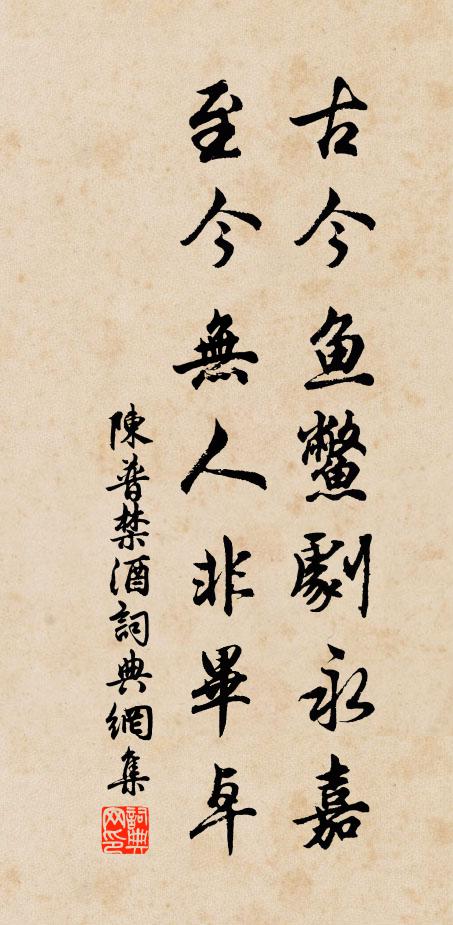 古今魚鱉劇永嘉
至今無人非畢卓
陳普禁酒詞典網集
詞典网印